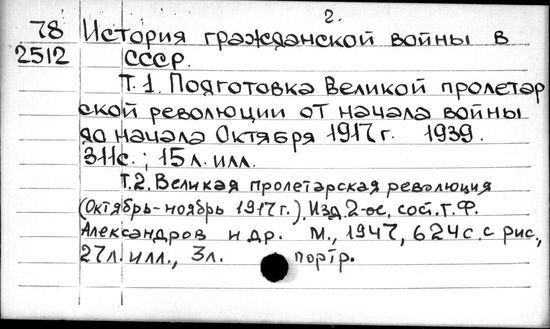 2.
78 История гражданской войны в
2512 СССР.
Т.1. Подготовка Великой пролетар
ской революции от начала войны
до начала Октября 1917 г. 1939.
311с.; 15 л. илл.
Т.2. Великая пролетарская революция
(Октябрь-ноябрь 1917 г.). Изд. 2-ое, сост. Г.Ф.
Александров и др. М., 1947, 624 с. с рис.,
27 л. илл., 3 л. портр.